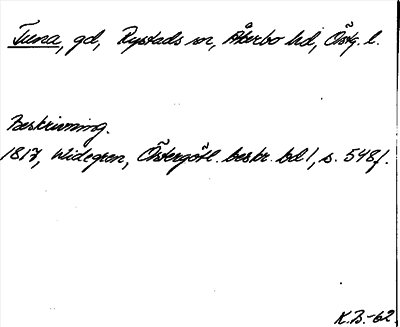 Tuna, gd, Rystads sn, Åkerbo hd, Östg. l.
Beskrivning.
1817, Widegren, Östergötl. beskr. bd 1, s. 548f.
K.B.-62.